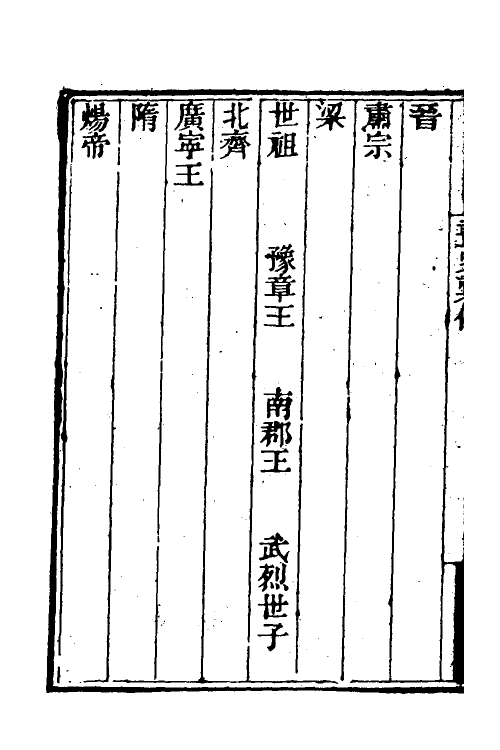 晉
肅宗
梁
世祖 豫章王 南郡王 武烈世子
北齊
廣寧王
隋
煬帝